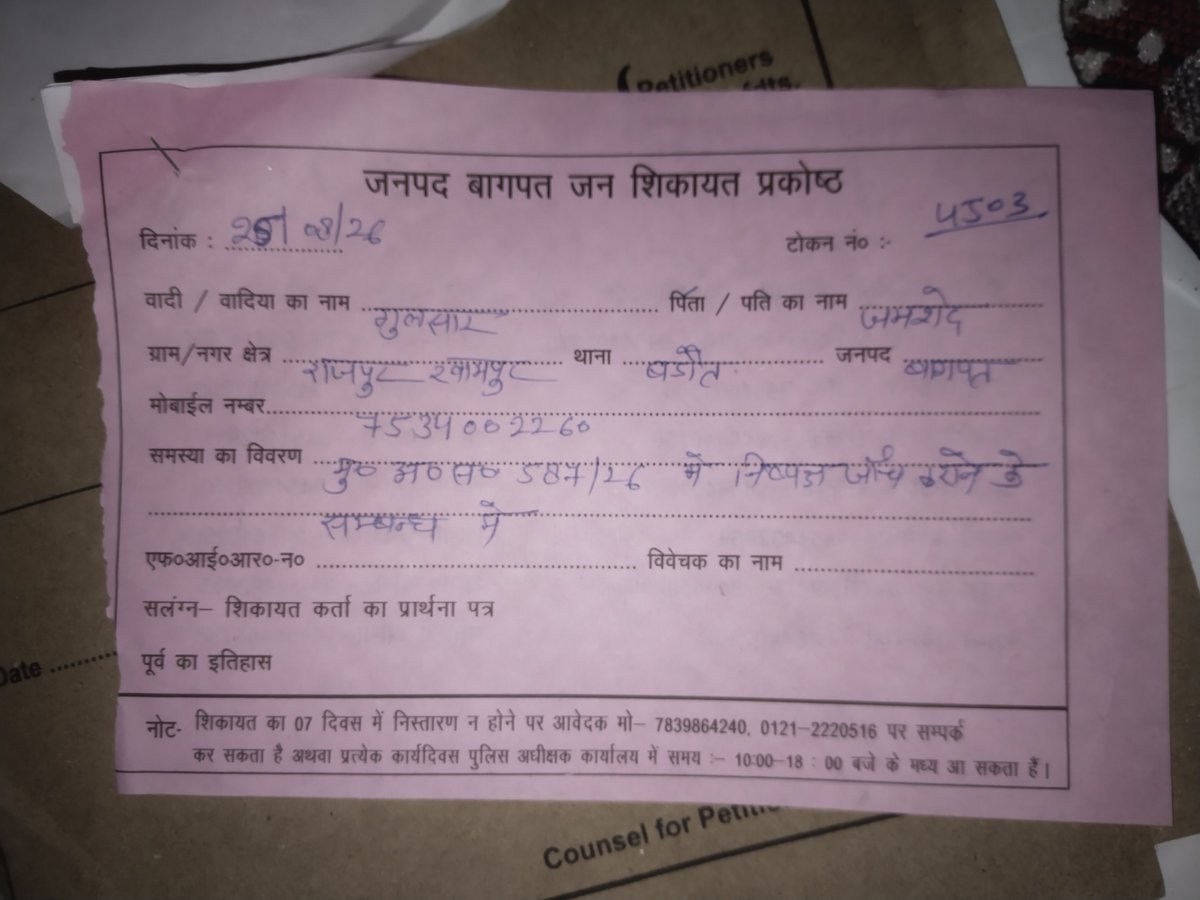 Petitioners
जनपद बागपत जन शिकायत प्रकोष्ठ
दिनांक : 25/08/26 टोकन नं० :- 4503
वादी / वादिया का नाम गुलसार पिता / पति का नाम जमशेद
ग्राम/नगर क्षेत्र राजपुर खामपुर थाना बडौत जनपद बागपत
मोबाईल नम्बर 7534002260
समस्या का विवरण मु० अ० स० 587/26 मे निष्पक्ष जाँच कराने के
सम्बन्ध मे
एफ०आई०आर०-न० विवेचक का नाम
सलंग्न– शिकायत कर्ता का प्रार्थना पत्र
पूर्व का इतिहास
नोट- शिकायत का 07 दिवस में निस्तारण न होने पर आवेदक मो– 7839864240, 0121–2220516 पर सम्पर्क
कर सकता है अथवा प्रत्येक कार्यदिवस पुलिस अधीक्षक कार्यालय में समय :– 10:00–18 : 00 बजे के मध्य आ सकता हैं।
Date
Counsel for